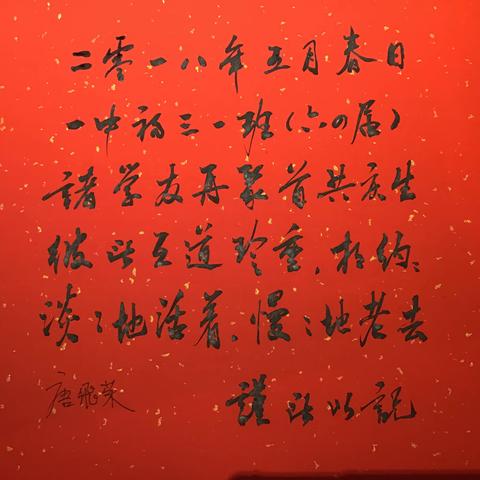 二零一八年五月春日
一中初三一班(六四届)
诸学友再聚首共庆生
彼此互道珍重,相约:
淡淡地活着,慢慢地老去
谨此以记
唐飛荣